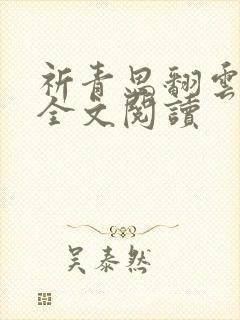 祈青思翻雲
全文閱讀
吴泰然